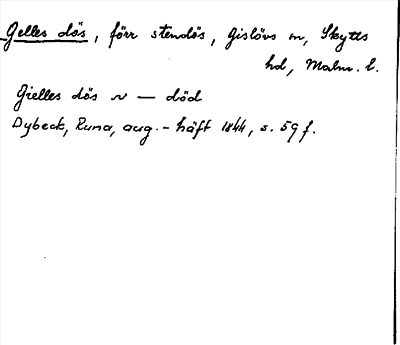 Gelles dös, förr stendös, Gislövs sn, Skytts
hd, Malm. l.
Gielles dös ~ — död
Dybeck, Runa, aug.-häft 1844, s. 59 f.